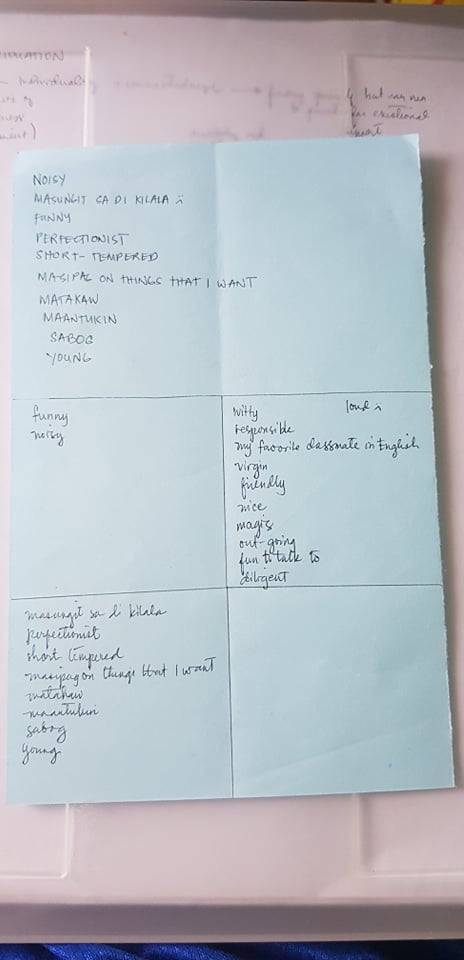 NOISY
MASUNGIT SA DI KILALA :
FUNNY
PERFECTIONIST
SHORT-TEMPERED
MASIPAG ON THINGS THAT I WANT
MATAKAW
MAANTUKIN
SABOG
YOUNG
funny
noisy
witty
loud :
responsible
my favorite classmate in English
virgin
friendly
nice
magis
out-going
fun to talk to
diligent
masungit sa di kilala
perfectionist
short tempered
masipag on things that I want
matakaw
maantukin
sabog
young